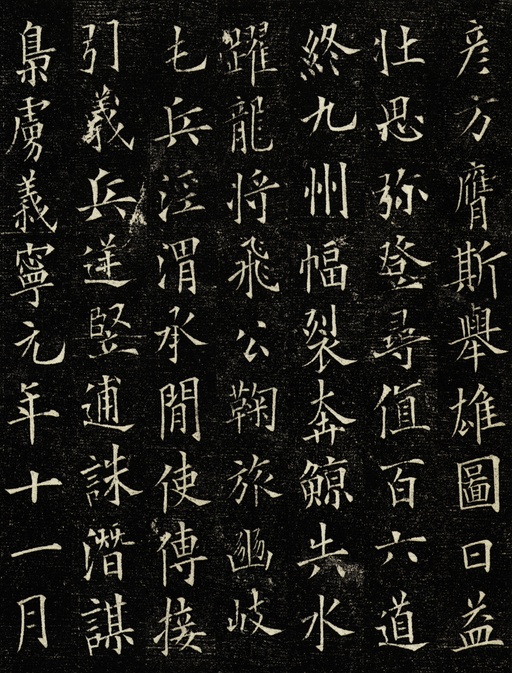 彦方膺斯舉雄圖日益
壮思弥登尋值百六道
終九州幅裂奔鯨失水
躍龍将飛公鞠旅豳岐
屯兵涇渭承閒使傳接
引義兵逆竪逋誅潜謀
梟虜義寧元年十一月